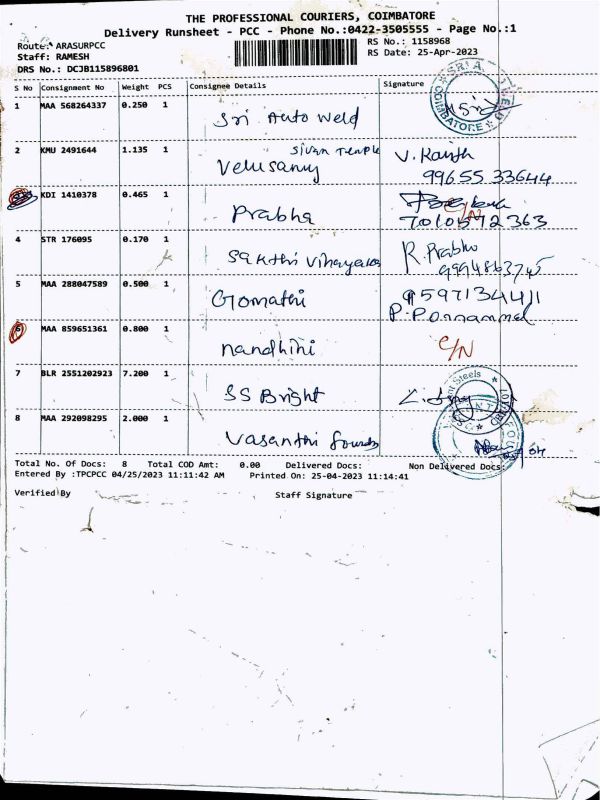 THE PROFESSIONAL COURIERS, COIMBATORE
Delivery Runsheet - PCC - Phone No.:0422-3505555 - Page No.:1
Route: ARASURPCC
RS No.: 1158968
Staff: RAMESH
RS Date: 25-Apr-2023
DRS No.: DCJB115896801
S No Consignment No Weight PCS Consignee Details Signature
1 MAA 568264337 0.250 1 Sri Auto Weld
COIMBATORE
2 KMU 2491644 1.135 1 Velusamy Sivan Temple V. Kanth
99655 33644
KDI 1410378 0.465 1 Prabha
C/N
7010592363
4 STR 176095 0.170 1 Sakthi Vinayaga R. Prabhu
5 MAA 288047589 0.500 1 Gomathi 9597134411
P. Ponnammal
6 MAA 859651361 0.800 1 nandhini C/N
7 BLR 2551202923 7.200 1 SS Bright
Steels
8 MAA 292098295 2.000 1 Vasanthi
Total No. Of Docs: 8 Total COD Amt: 0.00 Delivered Docs: Non Delivered Docs:
Entered By :TPCPCC 04/25/2023 11:11:42 AM Printed On: 25-04-2023 11:14:41
Verified By Staff Signature